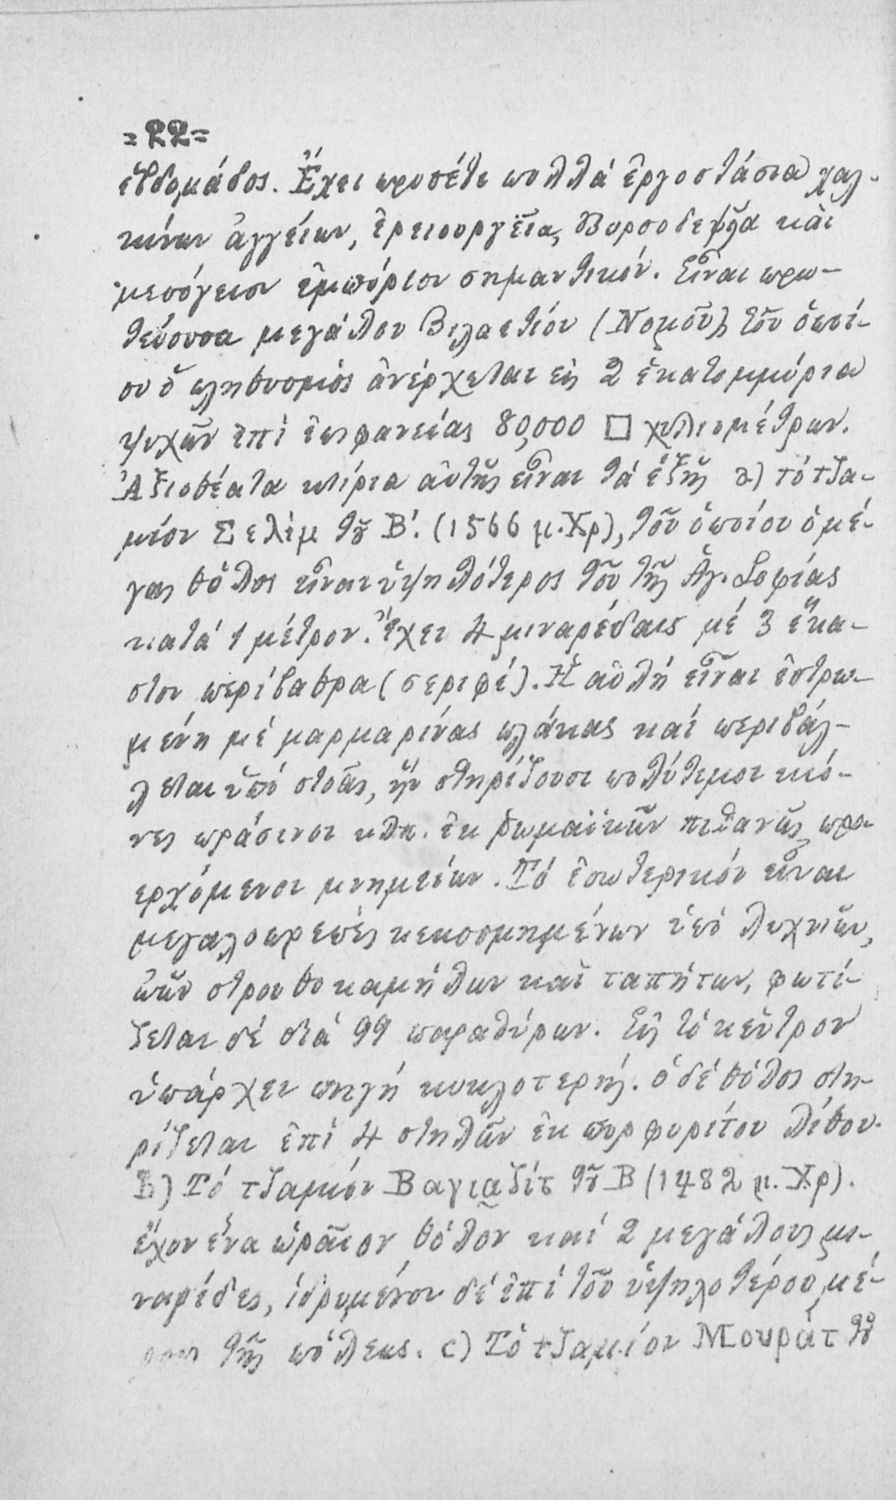 =22=
ἑβδομάδος. Ἔχει προσέτι πολλά ἐργοστάσια χαλ-
κίνων ἀγγείων, ἐριουργεῖα, βυρσοδεψεῖα καὶ
μεσόγειον ἐμπόριον σημαντικόν. Εἶναι πρω-
τεύουσα μεγάλου Βιλαετίου (Νομοῦ) τοῦ ὁποί-
ου ὁ πληθυσμός ἀνέρχεται εἰς 2 ἑκατομμύρια
ψυχῶν ἐπὶ ἐπιφανείας 80,000 □ χιλιομέτρων.
Ἀξιοθέατα κτίρια αὐτῆς εἶναι τά ἑξῆς a) τό τζα-
μίον Σελὶμ τοῦ Β΄. (1566 μ.Χρ), τοῦ ὁποίου ὁ μέ-
γας θόλος εἶναι ὑψηλότερος τοῦ τῆς Ἁγ. Σοφίας
κατά 1 μέτρον. Ἔχει 4 μιναρέδαις μέ 3 ἕκα-
στον περίβαθρα (σεριφέ). Ἡ αὐλή εἶναι ἐστρω-
μένη μέ μαρμαρίνας πλάκας καί περιβάλ-
λεται ὑπό στοᾶς, ἥν στηρίζουσι πολύτιμοι κίο-
νες πράσινοι κλπ. ἐκ ῥωμαϊκῶν πιθανῶς προ-
ερχόμενοι μνημείων. Τό ἐσωτερικόν εἶναι
μεγαλοπρεπές κεκοσμημένων ὑπό λυχνιῶν,
ὠῶν στρουθοκαμήλων καὶ ταπήτων, φωτί-
ζεται δέ διά 99 παραθύρων. Εἰς τό κέντρον
ὑπάρχει πηγή κυκλοτερής. ὁ δέ θόλος στη-
ρίζεται ἐπὶ 4 στηλῶν ἐκ πορφυρίτου λίθου.
b) Τό τζαμίόν Βαγιαζίτ τοῦ Β (1482 μ. Χρ).
ἔχον ἕνα ὡραῖον θόλον καί 2 μεγάλους μι-
ναρέδες, ἱδρυμένον δέ ἐπί τοῦ ὑψηλοτέρου μέ-
ρους τῆς πόλεως. c) Τό τζαμίον Μουράτ τοῦ